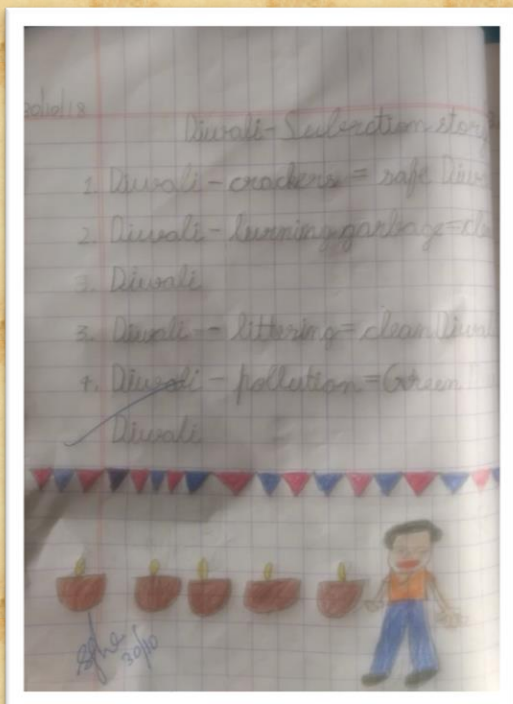 30/10/18
Diwali - Subraction story
1. Diwali - crackers = safe Diw
2. Diwali - burning garbage = cle
3. Diwali
3. Diwali - littering = clean Diwa
4. Diwali - pollution = Green
Diwali
30/10